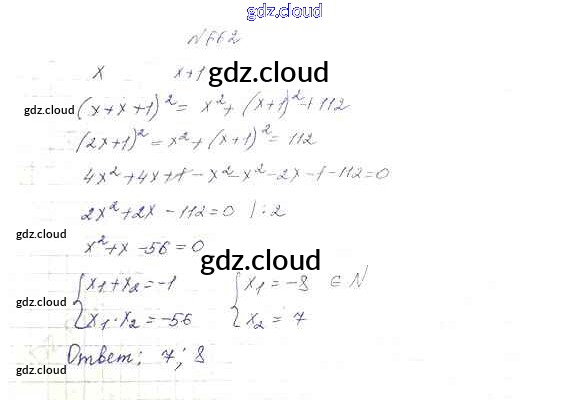 gdz.cloud
№662
x x+1
gdz.cloud
gdz.cloud (x+x+1)² = x² + (x+1)² + 112
(2x+1)² = x² + (x+1)² = 112
4x² + 4x + 1 - x² - x² - 2x - 1 - 112 = 0
2x² + 2x - 112 = 0 |:2
gdz.cloud
x² + x - 56 = 0
gdz.cloud
{ x₁ + x₂ = -1 { x₁ = -8 ∈ N
gdz.cloud
x₁ · x₂ = -56 x₂ = 7
Ответ: 7; 8
gdz.cloud